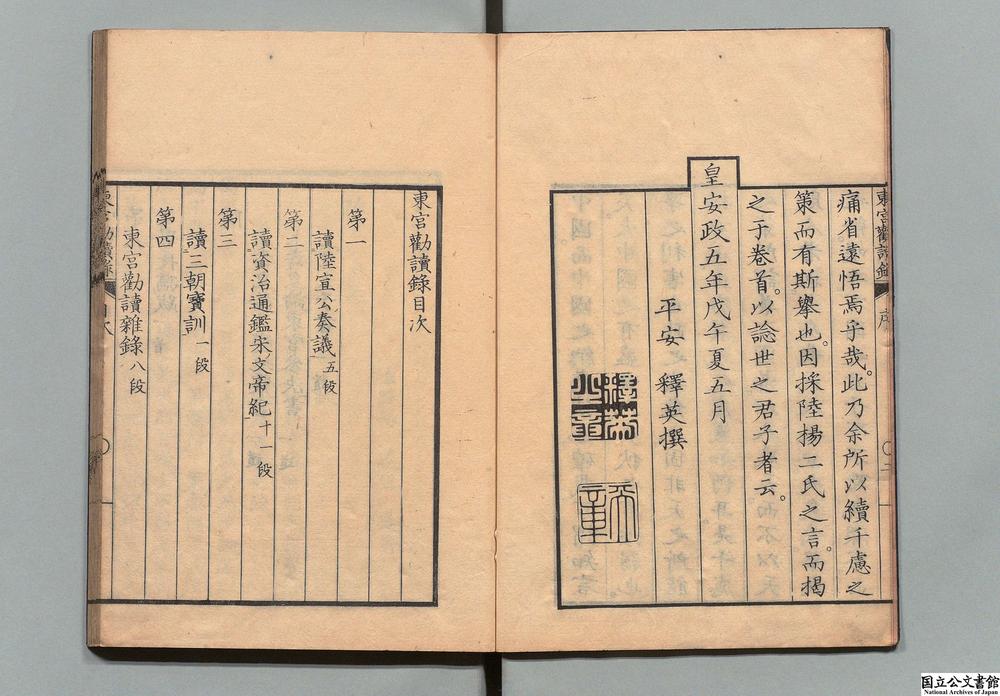 痛省遠悟焉乎哉。此乃余所以續千慮之
策而有斯擧也。因採陸揚二氏之言。而揭
之于卷首。以諗世之君子者云。
皇安政五年戊午夏五月
平安 釋英撰
東宮勸讀錄
序
〇二
東宮勸讀錄目次
第一
讀陸宣公奏議 五段
第二
讀資治通鑑宋文帝紀 十一段
第三
讀三朝寶訓 一段
第四
東宮勸讀雜錄 八段
目次
〇一
国立公文書館
National Archives of Japan